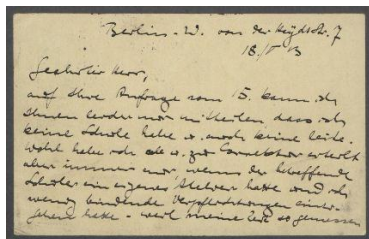 Berlin-W. von der Heydtstr. 7
18. V 13
Geehrter Herr,
auf Ihre Anfrage vom 15. kann ich
Ihnen leider nur mitteilen dass ich
keine Schule habe u. auch keine leite.
wohl habe ich ab u. zu Correktur erteilt
aber immer nur, wenn der Schaffende
Schüler ein eigenes Atelier hatte und ich
wenig bindende Verpflichtungen
hatte – weil meine Zeit so gemessen